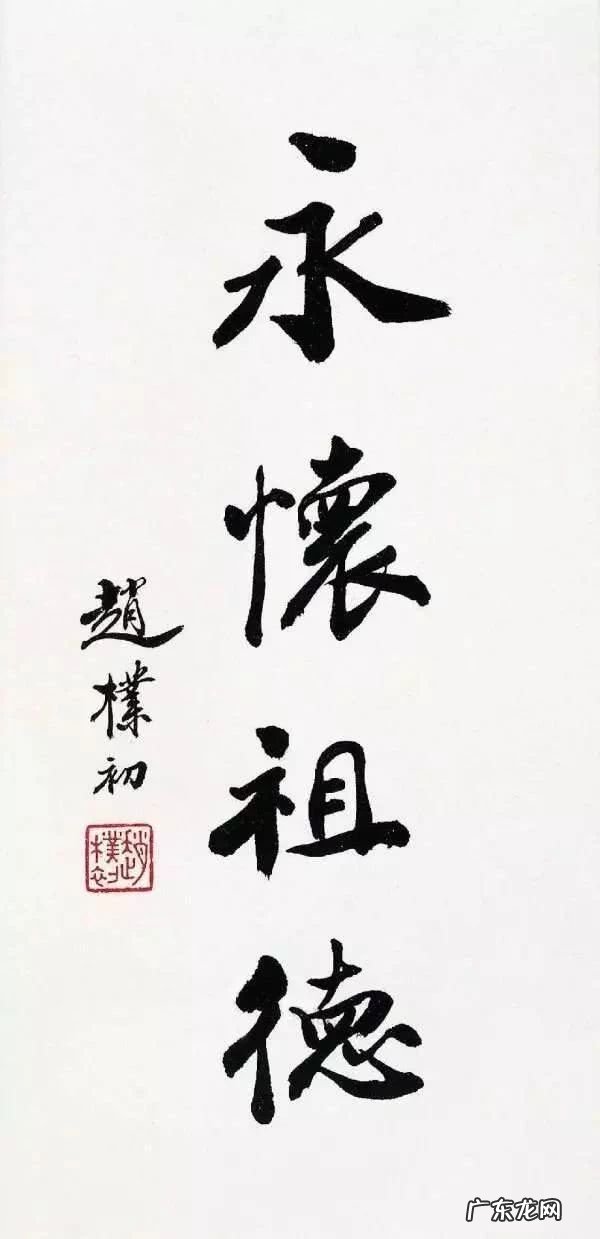 永懷祖德
趙樸初
趙樸初
广东龙网